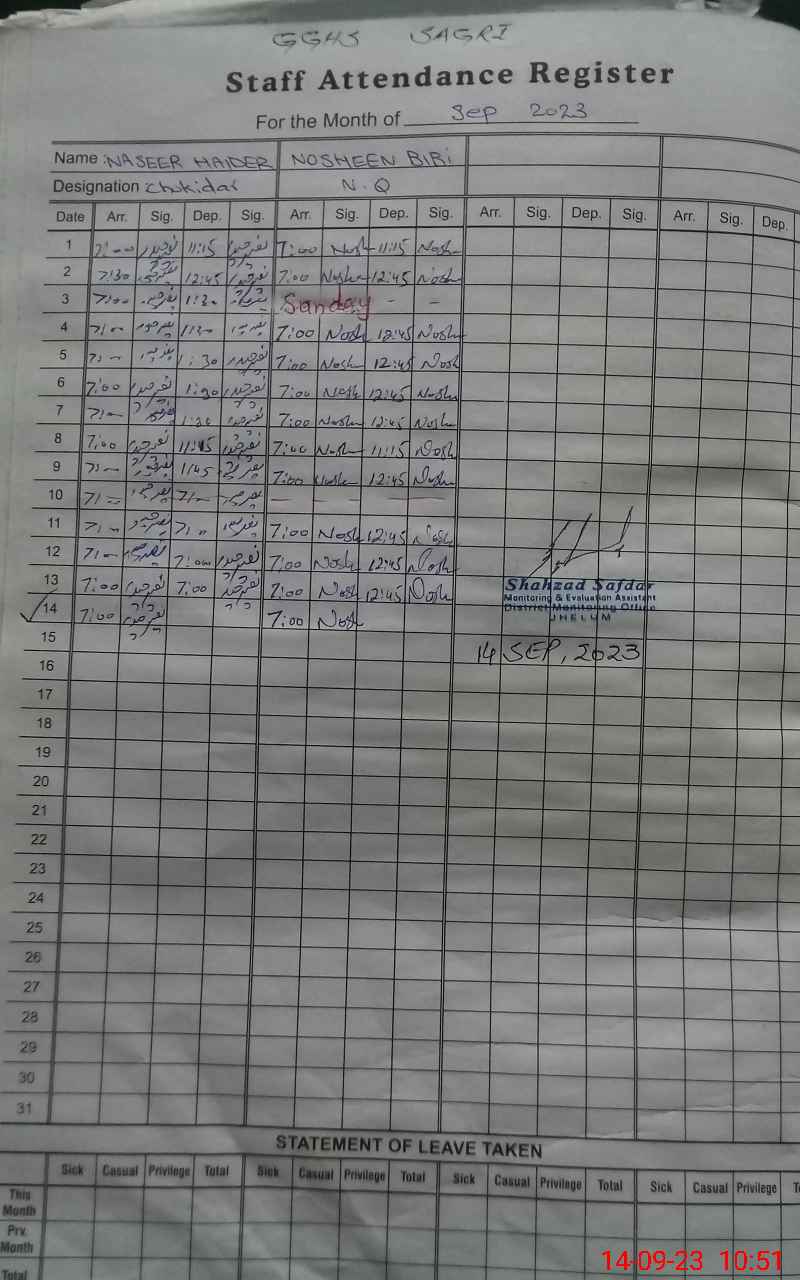 GGHS SAGRI
Staff Attendance Register
For the Month of Sep 2023
Name NASEER HAIDER NOSHEEN BIBI
Designation Chokidar N.Q
Date Arr. Sig. Dep. Sig. Arr. Sig. Dep. Sig. Arr. Sig. Dep. Sig. Arr. Sig. Dep.
1 7:00 11:15 7:00 Nosh 11:15 Nosh
2 7:30 12:45 7:00 Nosh 12:45 Nosh
3 7:00 1:30 Sanday - -
4 1:30 7:00 Nosh 12:45 Nosh
5 1:30 7:00 Nosh 12:45 Nosh
6 7:00 1:30 7:00 Nosh 12:45 Nosh
7 1:30 7:00 Nosh 12:45 Nosh
8 7:00 11:15 7:00 Nosh 11:15 Nosh
9 1:45 7:00 Nosh 12:45 Nosh
10
11 7:00 Nosh 12:45 Nosh
12 7:00 7:00 Nosh 12:45 Nosh
13 7:00 7:00 7:00 Nosh 12:45 Nosh
14 7:00 7:00 Nosh
Shahzad Safdar
Monitoring & Evaluation Assistant
District Monitoring Office
JHELUM
15
14 SEP, 2023
16
17
18
19
20
21
22
23
24
25
26
27
28
29
30
31
STATEMENT OF LEAVE TAKEN
Sick Casual Privilege Total Sick Casual Privilege Total Sick Casual Privilege Total Sick Casual Privilege
This Month
Prv. Month
Total
14-09-23 10:51